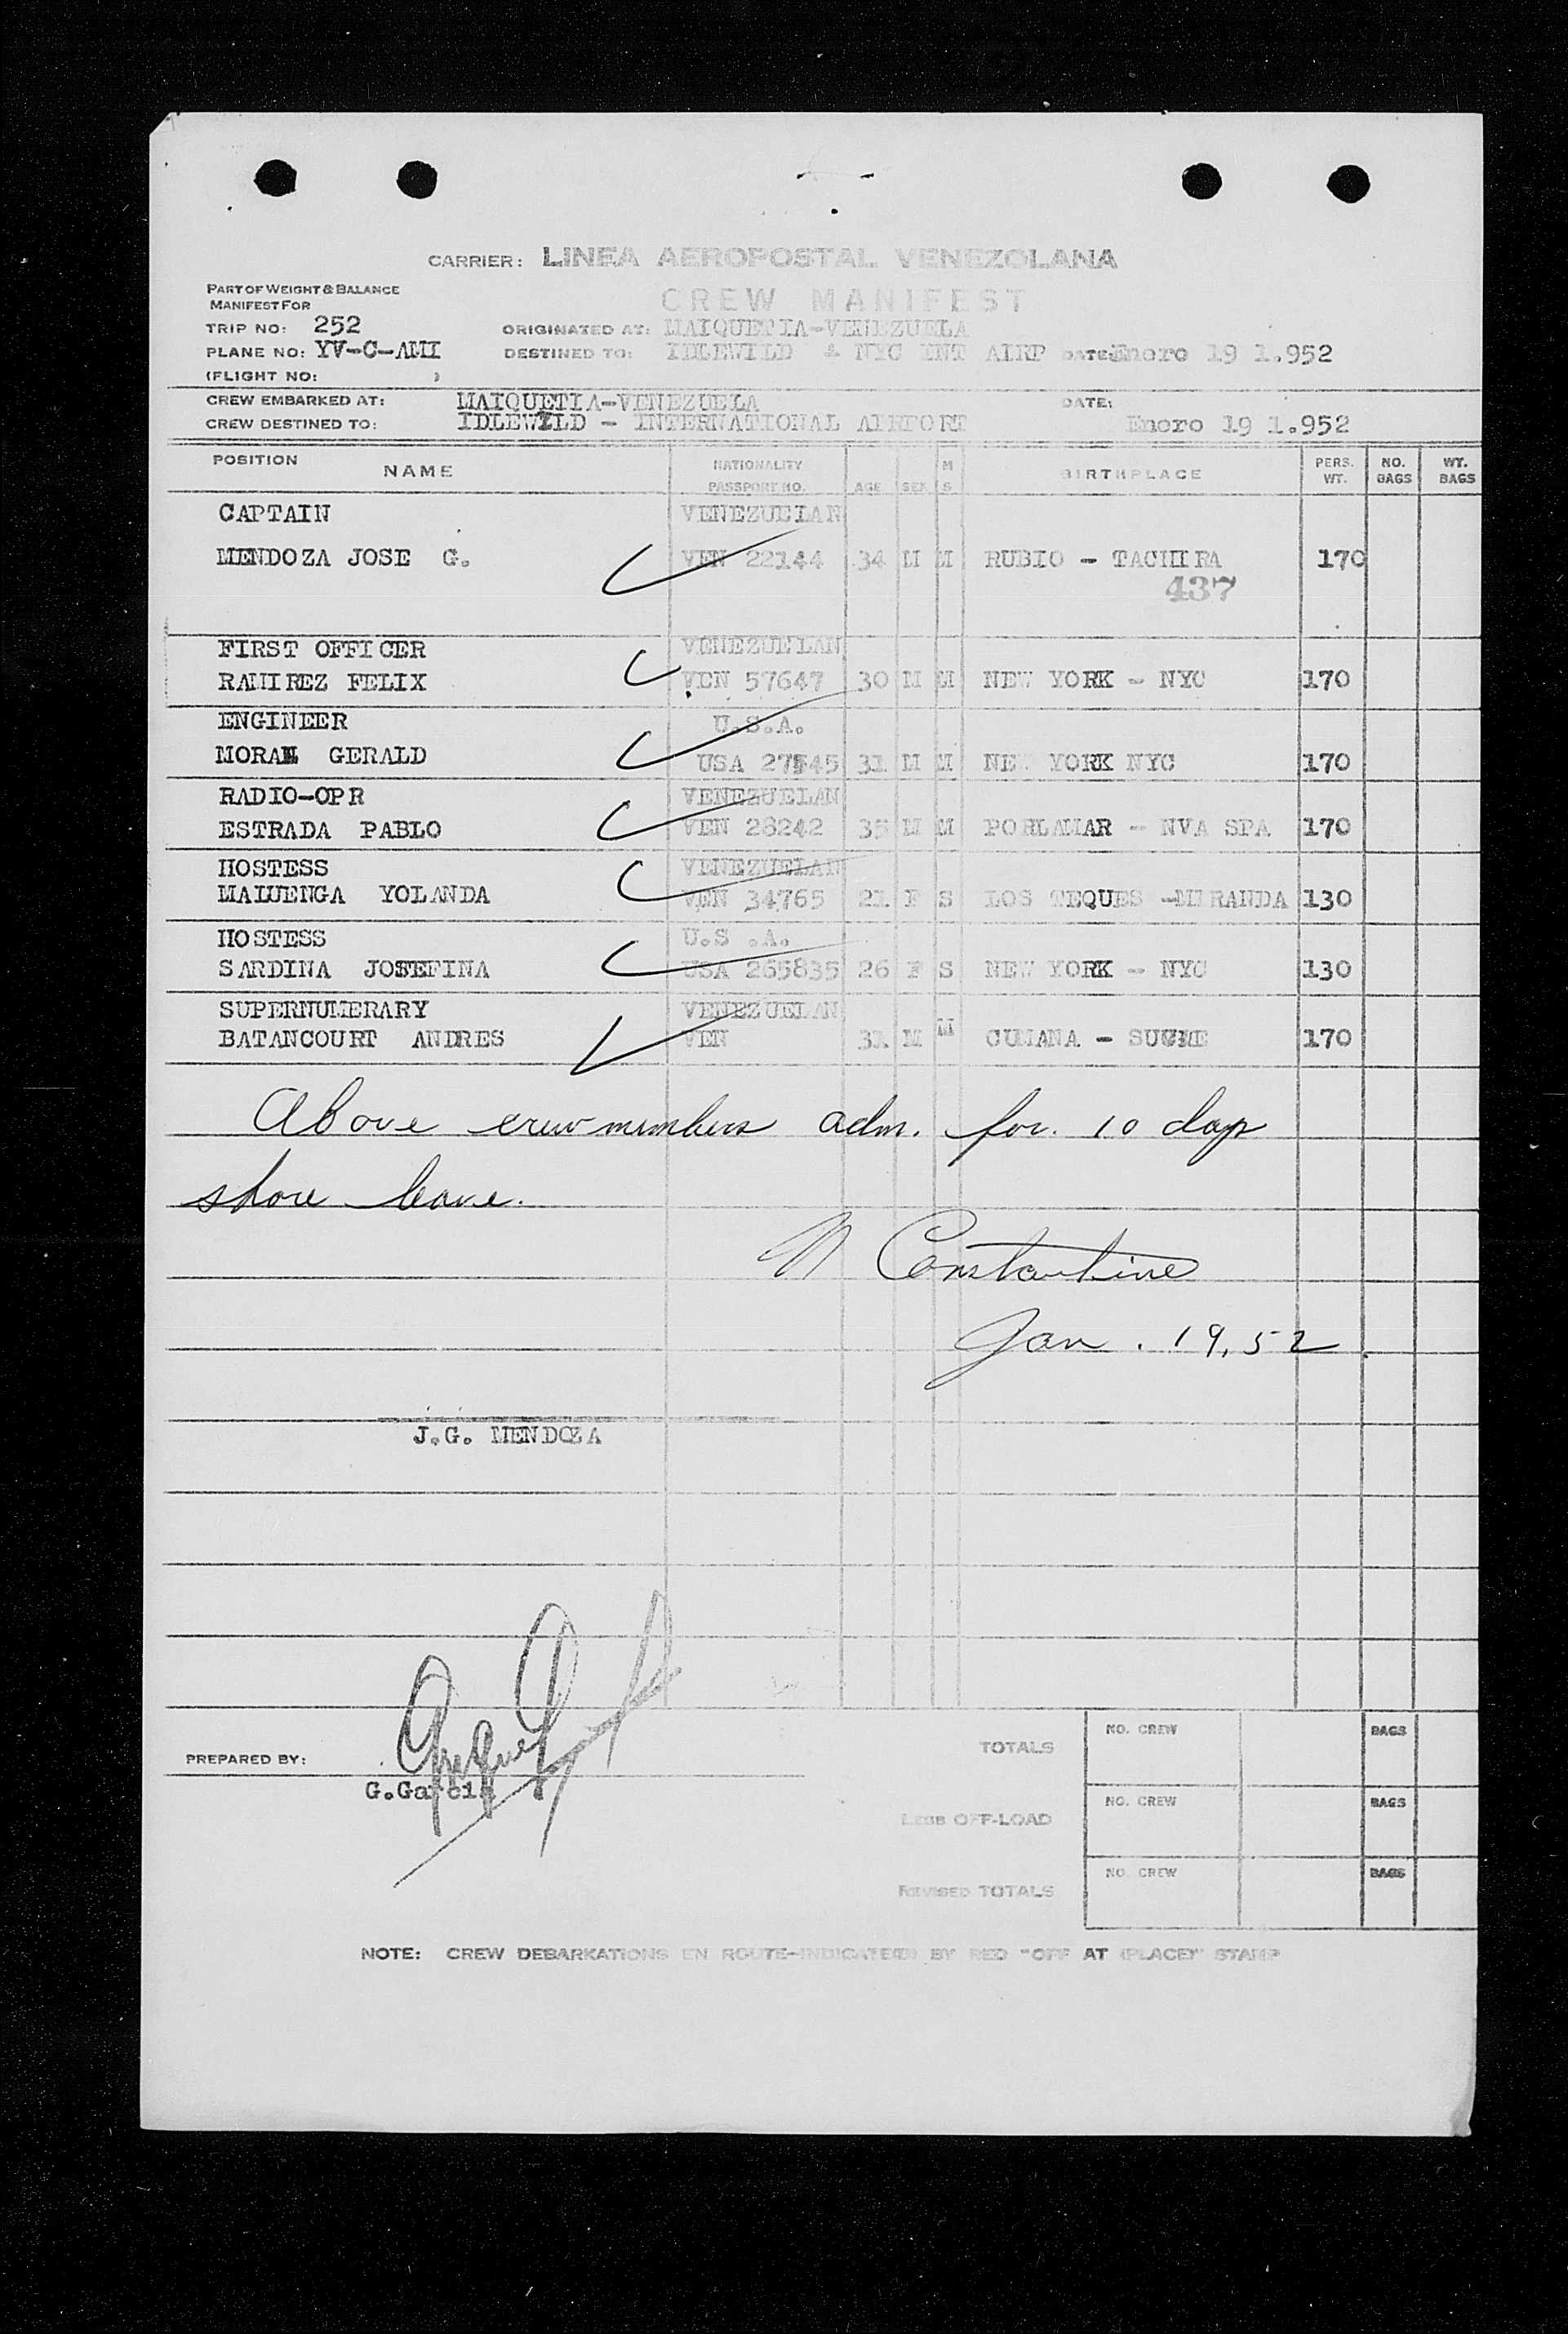 CARRIER: LINEA AEROPOSTAL VENEZOLANA
PART OF WEIGHT & BALANCE
MANIFEST FOR
CREW MANIFEST
TRIP NO: 252 ORIGINATED AT: MAIQUETIA-VENEZUELA
PLANE NO: YV-C-AMI DESTINED TO: IDLEWILD & NYC INT AIRP DATE: Enero 19 1.952
(FLIGHT NO: )
CREW EMBARKED AT: MAIQUETIA-VENEZUELA DATE:
CREW DESTINED TO: IDLEWILD - INTERNATIONAL AIRPORT Enero 19 1.952
POSITION NAME NATIONALITY PASSPORT NO. AGE SEX M S BIRTHPLACE PERS. WT. NO. BAGS WT. BAGS
CAPTAIN VENEZUELAN
MENDOZA JOSE G. VEN 22144 34 M M RUBIO - TACHIRA 170
437
FIRST OFFICER VENEZUELAN
RAMIREZ FELIX VEN 57647 30 M M NEW YORK - NYC 170
ENGINEER U.S.A.
MORAN GERALD USA 27545 31 M M NEW YORK NYC 170
RADIO-OPR VENEZUELAN
ESTRADA PABLO VEN 28242 35 M M PORLAMAR - NVA SPA 170
HOSTESS VENEZUELAN
MALUENGA YOLANDA VEN 34765 21 F S LOS TEQUES -MIRANDA 130
HOSTESS U.S .A.
SARDINA JOSEFINA USA 265835 26 F S NEW YORK - NYC 130
SUPERNUMERARY VENEZUELAN
BATANCOURT ANDRES VEN 31 M M CUMANA - SUCRE 170
Above crewmembers adm. for 10 days
shore leave.
N Constantine
Jan. 19, 52
J.G. MENDOZA
PREPARED BY:
G.Garcia
TOTALS NO. CREW BAGS
LESS OFF-LOAD NO. CREW BAGS
REVISED TOTALS NO. CREW BAGS
NOTE: CREW DEBARKATIONS EN ROUTE-INDICATED BY RED "OFF AT (PLACE)" STAMP